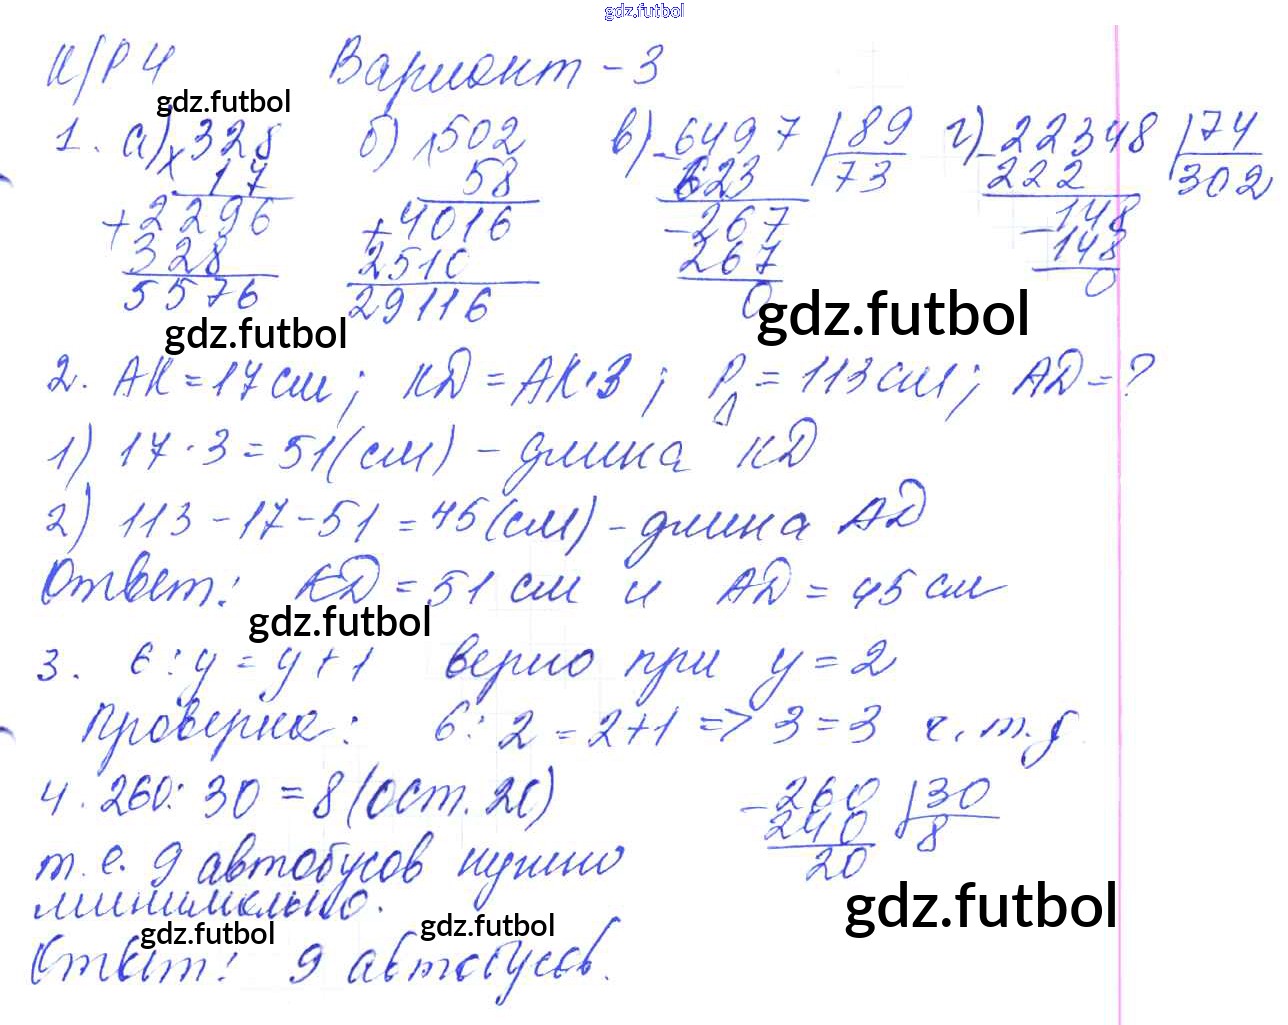 gdz.futbol
К/Р 4 Вариант - 3
gdz.futbol
1. а) × 328 б) × 502 в) - 6497 | 89 г) - 22348 | 74
17 58 623 73 222 302
+ 2296 + 4016 - 267 - 148
328 2510 267 148
5576 29116 0 0
gdz.futbol gdz.futbol
2. АК = 17 см ; КD = АК · 3 ; P△ = 113 см ; АD = ?
1) 17 · 3 = 51 (см) - длина КD
2) 113 - 17 - 51 = 45 (см) - длина АD
Ответ: КD = 51 см и АD = 45 см
gdz.futbol
3. 6 : y = y + 1 верно при y = 2
Проверка: 6 : 2 = 2 + 1 => 3 = 3 ч. т. д
4. 260 : 30 = 8 (ост. 20) - 260 | 30
240 8
т. е. 9 автобусов нужно 20
минимально. gdz.futbol
gdz.futbol gdz.futbol
Ответ: 9 автобусов.